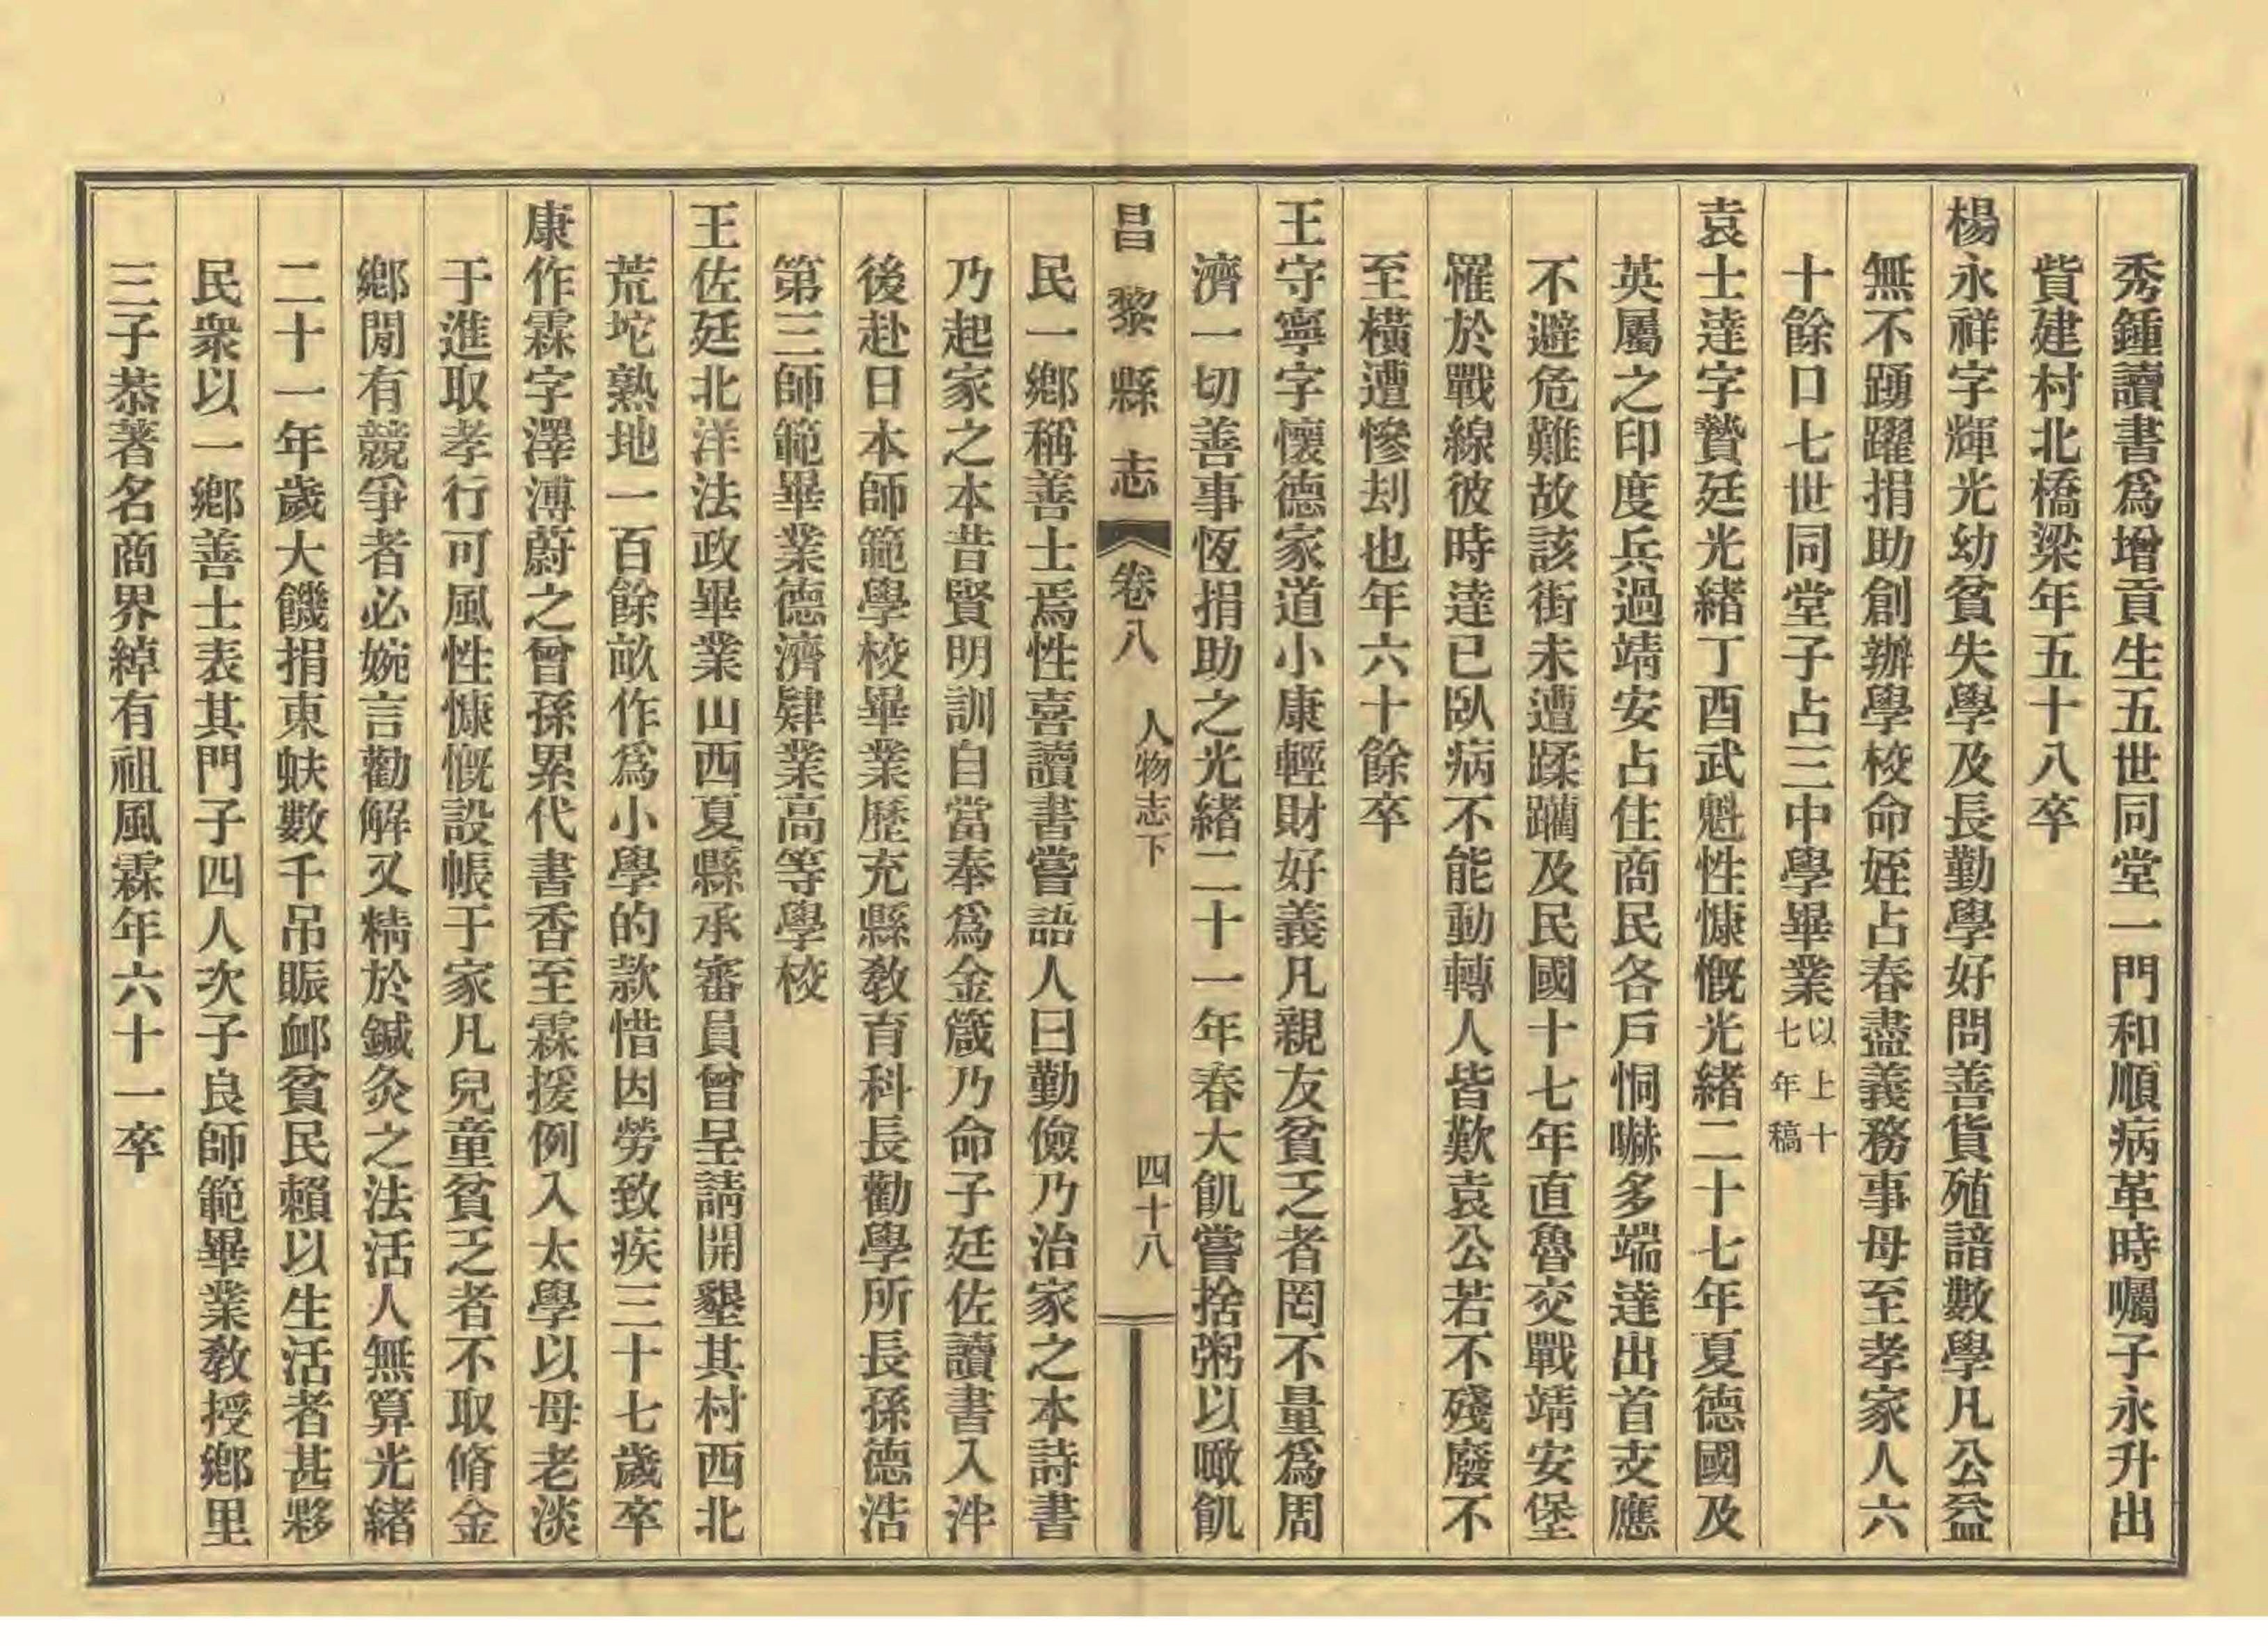 秀鍾讀書爲增貢生五世同堂一門和順病革時囑子永升出
貲建村北橋梁年五十八卒
楊永祥字輝光幼貧失學及長勤學好問善貨殖諳數學凡公益
無不踴躍捐助創辦學校命姪占春盡義務事母至孝家人六
十餘口七世同堂子占三中學畢業以上十七年稿
袁士逹字贊廷光緒丁酉武魁性慷慨光緒二十七年夏德國及
英屬之印度兵過靖安占住商民各戶恫嚇多端逹出首支應
不避危難故該街未遭蹂躪及民國十七年直魯交戰靖安堡
罹於戰線彼時逹已臥病不能動轉人皆歎袁公若不殘廢不
至橫遭慘刦也年六十餘卒
王守寧字懷德家道小康輕財好義凡親友貧乏者罔不量爲周
濟一切善事恆捐助之光緒二十一年春大飢嘗捨粥以噉飢
昌黎縣志 卷八 人物志下 四十八
民一鄉稱善士焉性喜讀書嘗語人曰勤儉乃治家之本詩書
乃起家之本昔賢明訓自當奉爲金箴乃命子廷佐讀書入泮
後赴日本師範學校畢業歷充縣敎育科長勸學所長孫德浩
第三師範畢業德濟肄業高等學校
王佐廷北洋法政畢業山西夏縣承審員曾呈請開墾其村西北
荒坨熟地一百餘畝作爲小學的款惜因勞致疾三十七歲卒
康作霖字澤溥蔚之曾孫累代書香至霖援例入太學以母老淡
于進取孝行可風性慷慨設帳于家凡兒童貧乏者不取脩金
鄉閒有競爭者必婉言勸解又精於鍼灸之法活人無算光緒
二十一年歲大饑捐東蚨數千吊賑卹貧民賴以生活者甚夥
民衆以一鄉善士表其門子四人次子良師範畢業敎授鄉里
三子恭著名商界綽有祖風霖年六十一卒